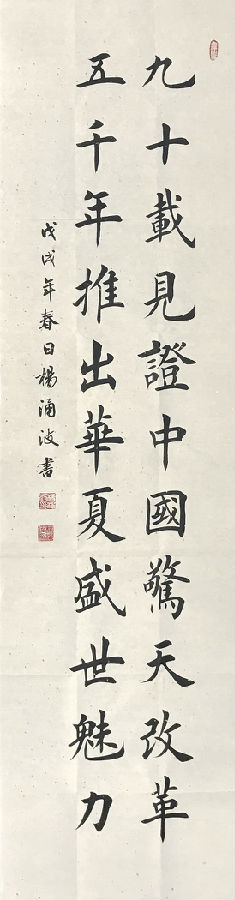 九十載見證中國驚天改革
五千年推出華夏盛世魅力
戊戌年春日楊涌波書